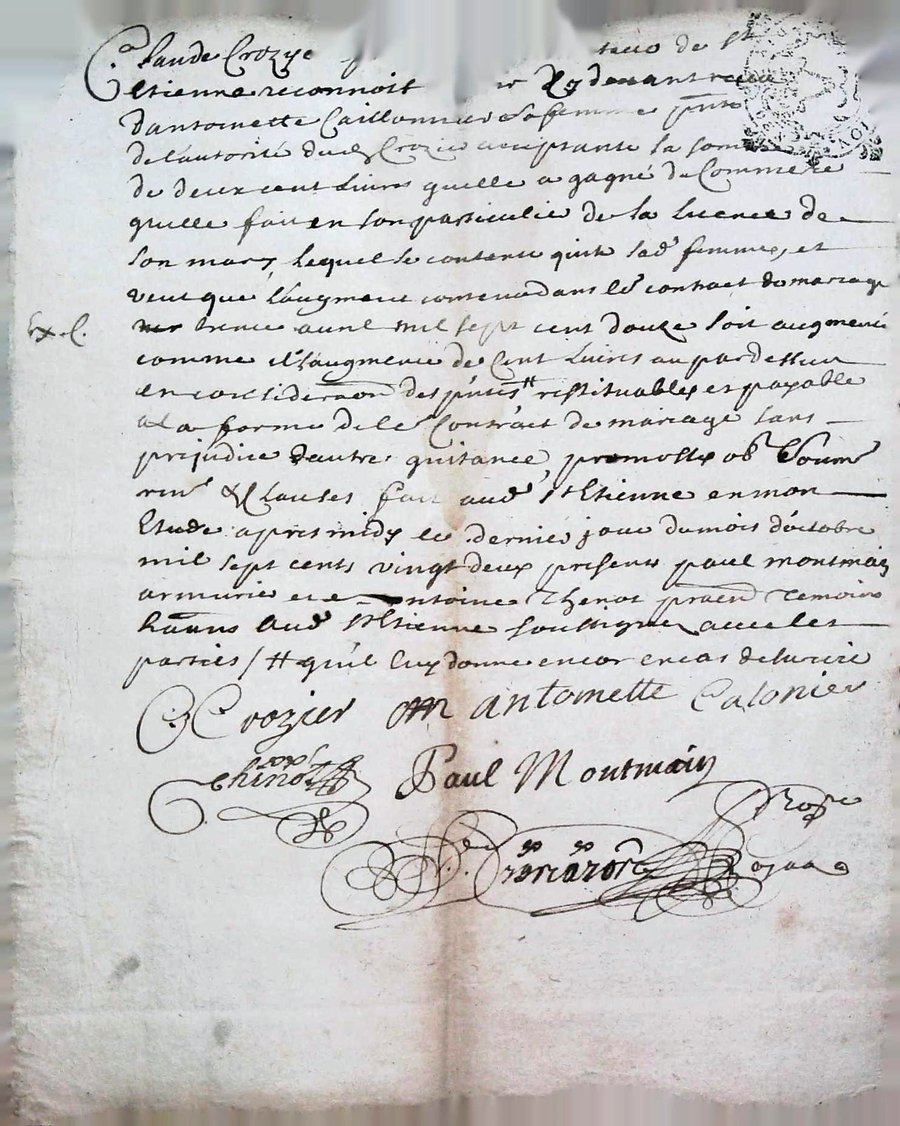 Claude Crozye de St
Etienne reconnoit devant
dantoinette Caillonnier sa femme pnte
de lautorité dud Crozier acceptante la somme
de deux cent Livres quelle a gagné du Commerce
quelle fait en son particulie de la licence de
son mary lequel se contente quite sad femme, et
veut que laugment contenu dans le contract de mariage
trente auril mil sept cent douze soit augmenté
comme il laugmente de Cent Livres au par dessus
Ex.
en consideraon des pntes # restituables et payable
a la forme de le Contrat de mariage sans
prejudice dautre quitance, promettx ob Soum
ren & clauses fait aud St Etienne en mon
Etude apres midy le dernier jour du mois doctobre
mil sept cents vingt deux presents paul montmain
armurie et antoine Chenot praen temoins
hauns aud St Etienne soussignes auec les
parties / # qu'il luy donne encor en cas de survie
C Crozier antoinette Calonier
Chinot Paul Montmain